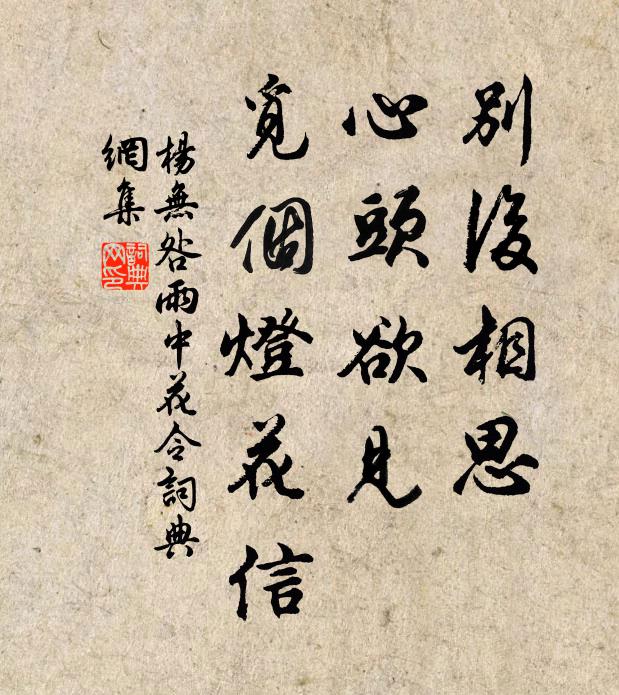 別後相思
心頭欲見
覓個燈花信
楊無咎雨中花令詞典
網集
詞典
网印